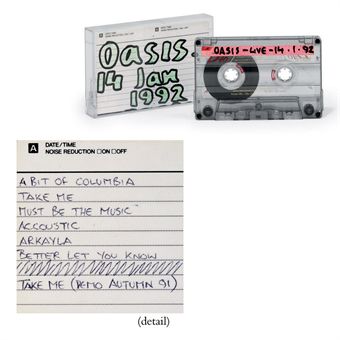 OASIS
14 JAN
1992
OASIS - LIVE - 14 · 1 · 92
A DATE/TIME
NOISE REDUCTION □ ON □ OFF
A BIT OF COLUMBIA
TAKE ME
MUST BE THE MUSIC
ACCOUSTIC
ARKAYLA
BETTER LET YOU KNOW
TAKE ME (DEMO AUTUMN 91)
(detail)